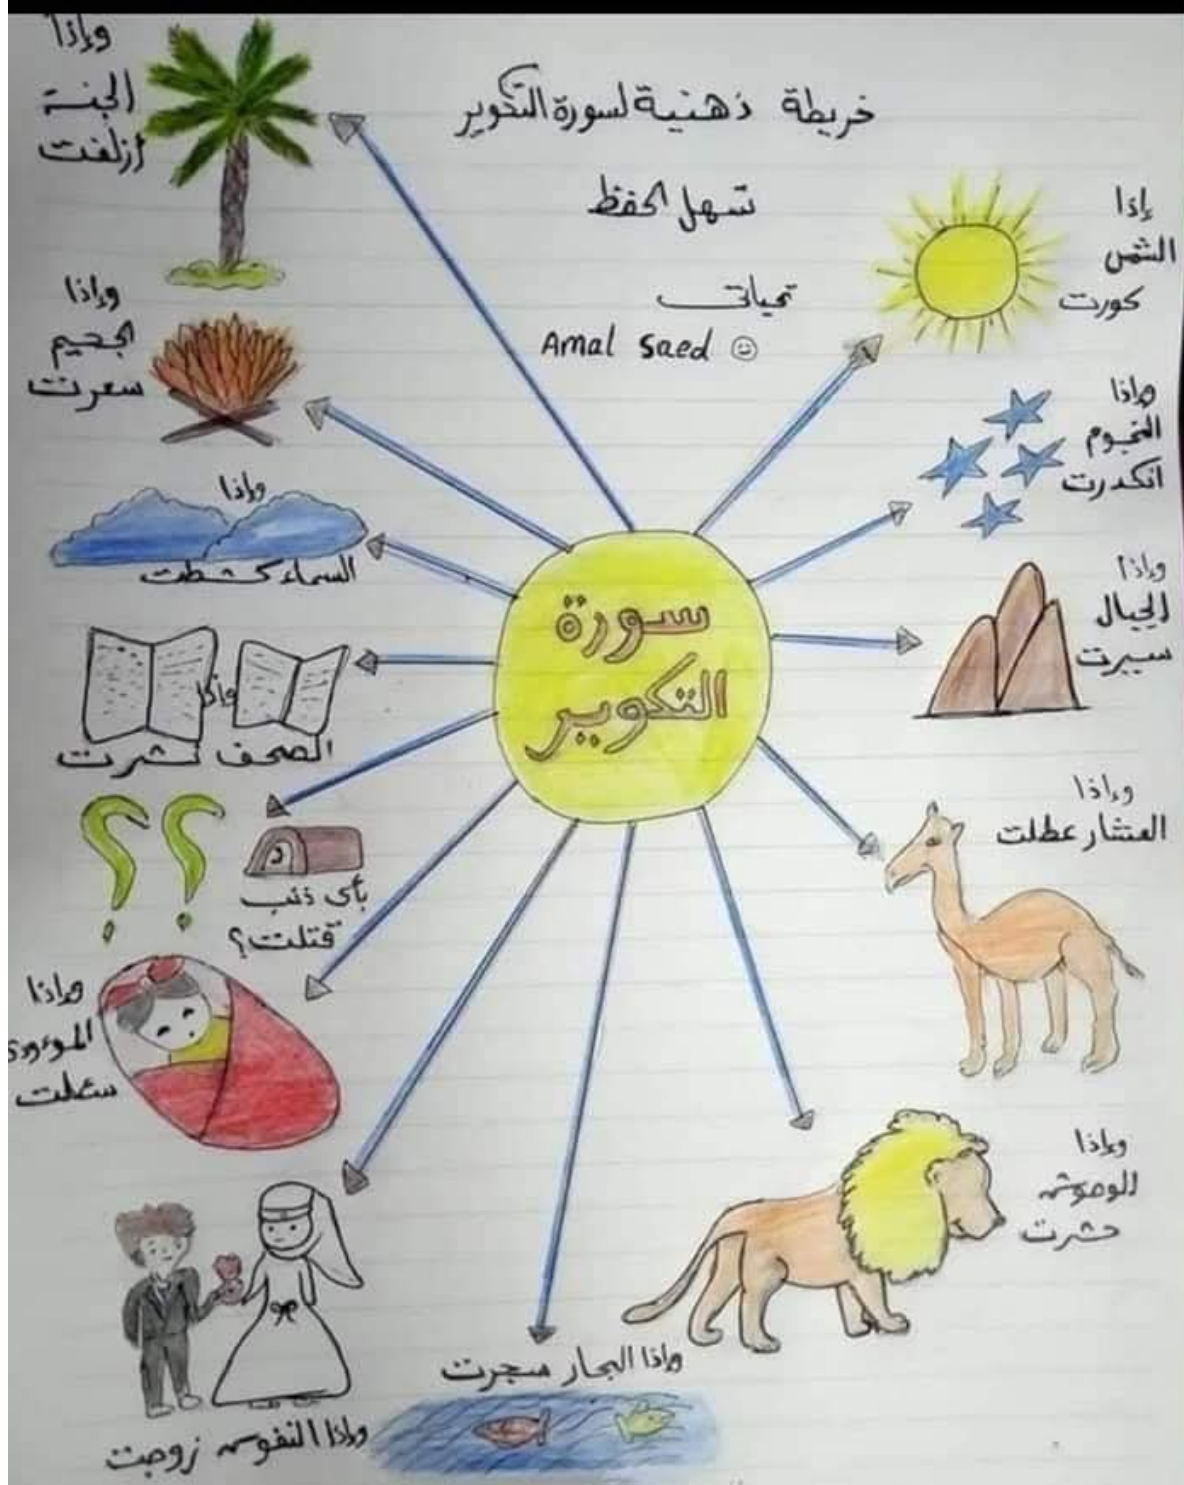 خريطة ذهنية لسورة التكوير
تسهل الحفظ
تحياتى
Amal Saed ☺
سورة
التكوير
إذا
الشمس
كورت
وإذا
النجوم
انكدرت
وإذا
الجبال
سيرت
وإذا
العشار عطلت
وإذا
الوحوش
حشرت
وإذا البحار سجرت
وإذا النفوس زوجت
وإذا
الموءودة
سئلت
بأى ذنب
قتلت؟
؟؟
وإذا
الصحف نشرت
وإذا
السماء كشطت
وإذا
الجحيم
سعرت
وإذا
الجنة
ازلفت